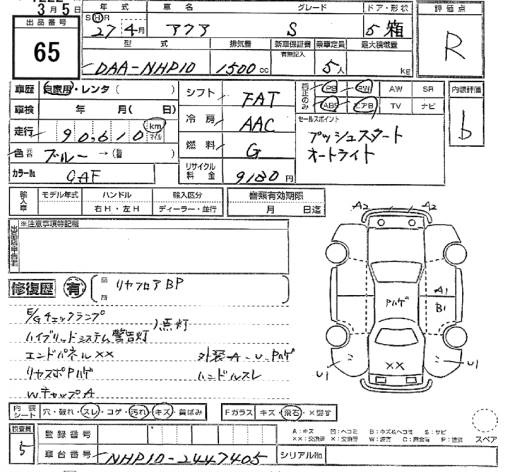 3月5日
出品番号
65
年式 車名 グレード ドア・形状
S H R 27年4月 アクア S 5 箱
型式 排気量 新車保証書 乗車定員 最大積載量
有無記入
DAA-NHP10 1500cc 5人 kg
評価点
R
車歴 自家用・レンタ( )
車検 年 月( 日)
走行 90,610 km マイル
色 ブルー →( )
カラーNo.
シフト FAT
冷房 AAC
燃料 G
リサイクル料金 9180円
純正のみ PS PW AW SR
ABS エアB TV ナビ
セールスポイント
プッシュスタート
オートライト
内装評価
b
輸入車 モデル年式 ハンドル 輸入区分
右H・左H ディーラー・並行
音無有効期限
月 日迄
※注意事項特記欄
修復歴 有
リヤフロアBP
E/Gチェックランプ
ハイブリッドシステム警告灯 点灯
エンドパネル×× 外装-A-U-Pハゲ
リヤスポPハゲ ハンドルスレ
WキャップA
A2 A2
A1
B1
Pハゲ
U1 ×× U1
内装シート 穴・破れ・スレ・コゲ・汚れ・キズ・黄ばみ
Fガラス キズ・飛石・×要す
スペア
検査員
5
登録番号
車台番号 NHP10-2447405 シリアルNo.